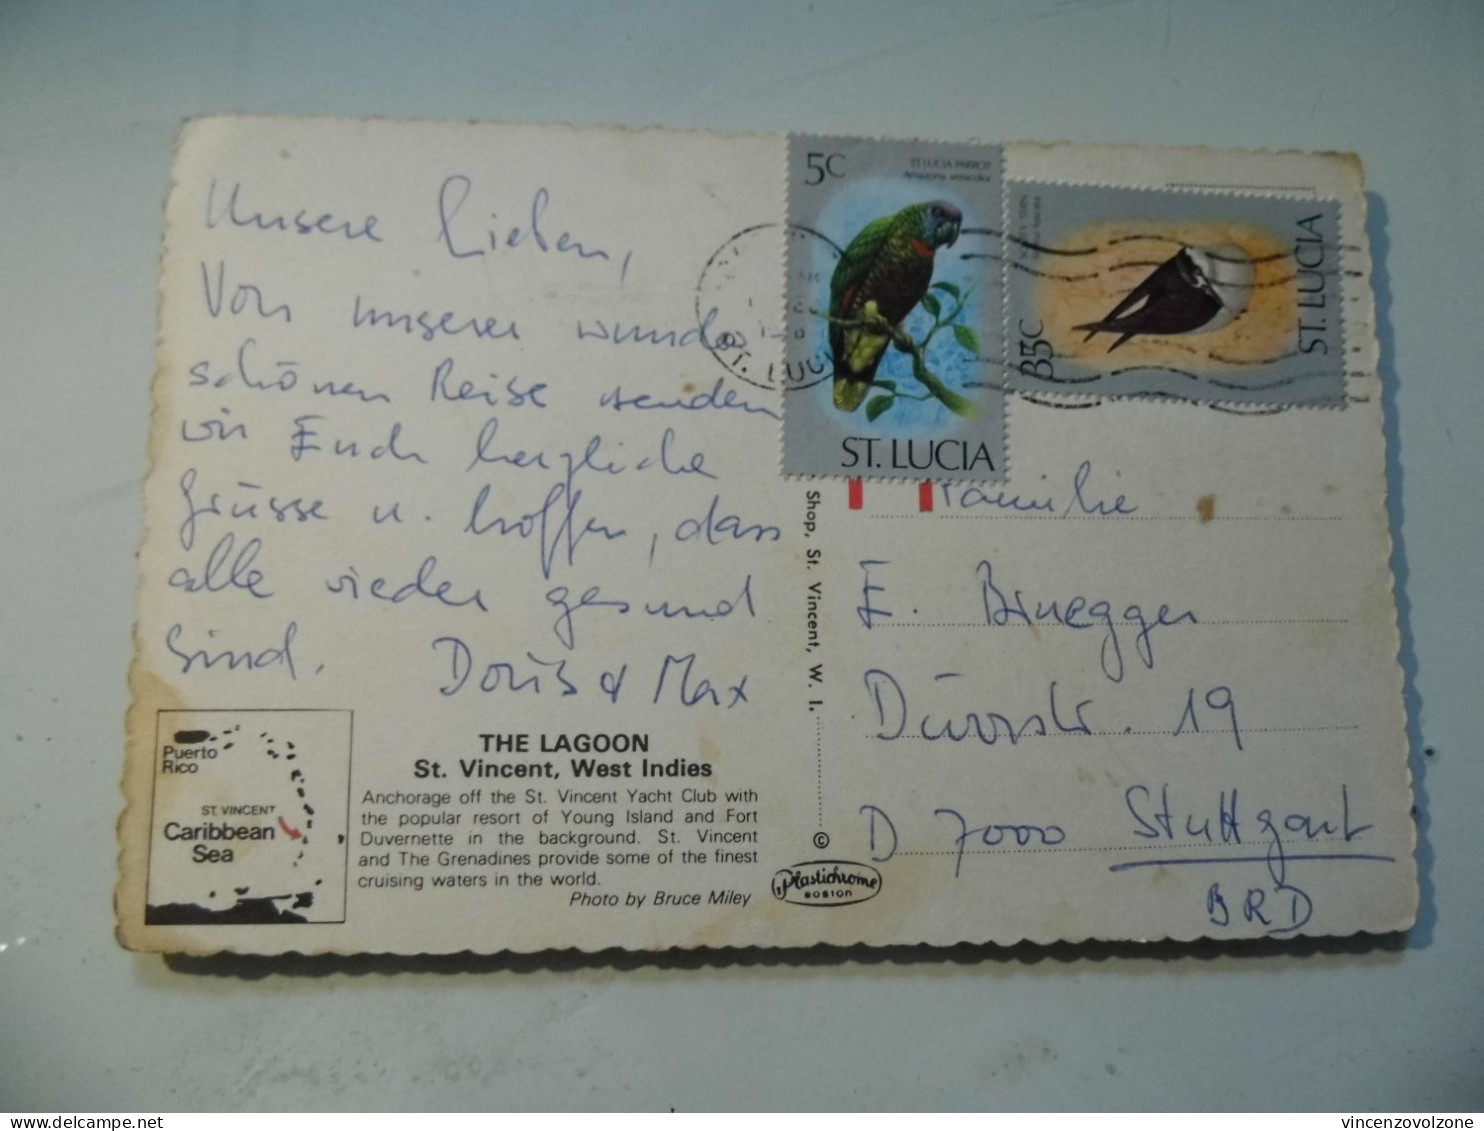 Unsere Lieben,
Von unserer wunder
schönen Reise senden
wir Euch herzliche
Grüsse u. hoffen, dass
alle wieder gesund
sind. Doris & Max
Puerto
Rico
ST. VINCENT
Caribbean
Sea
THE LAGOON
St. Vincent, West Indies
Anchorage off the St. Vincent Yacht Club with
the popular resort of Young Island and Fort
Duvernette in the background. St. Vincent
and The Grenadines provide some of the finest
cruising waters in the world.
Photo by Bruce Miley
Shop, St. Vincent, W. I.
©
Plastichrome
BOSTON
5C
ST. LUCIA PARROT
Amazona versicolor
ST. LUCIA
35C
ST. LUCIA
ST. LUCIA
Familie
E. Bruegger
Dürrstr. 19
D 7000 Stuttgart
BRD
vincenzovolzone